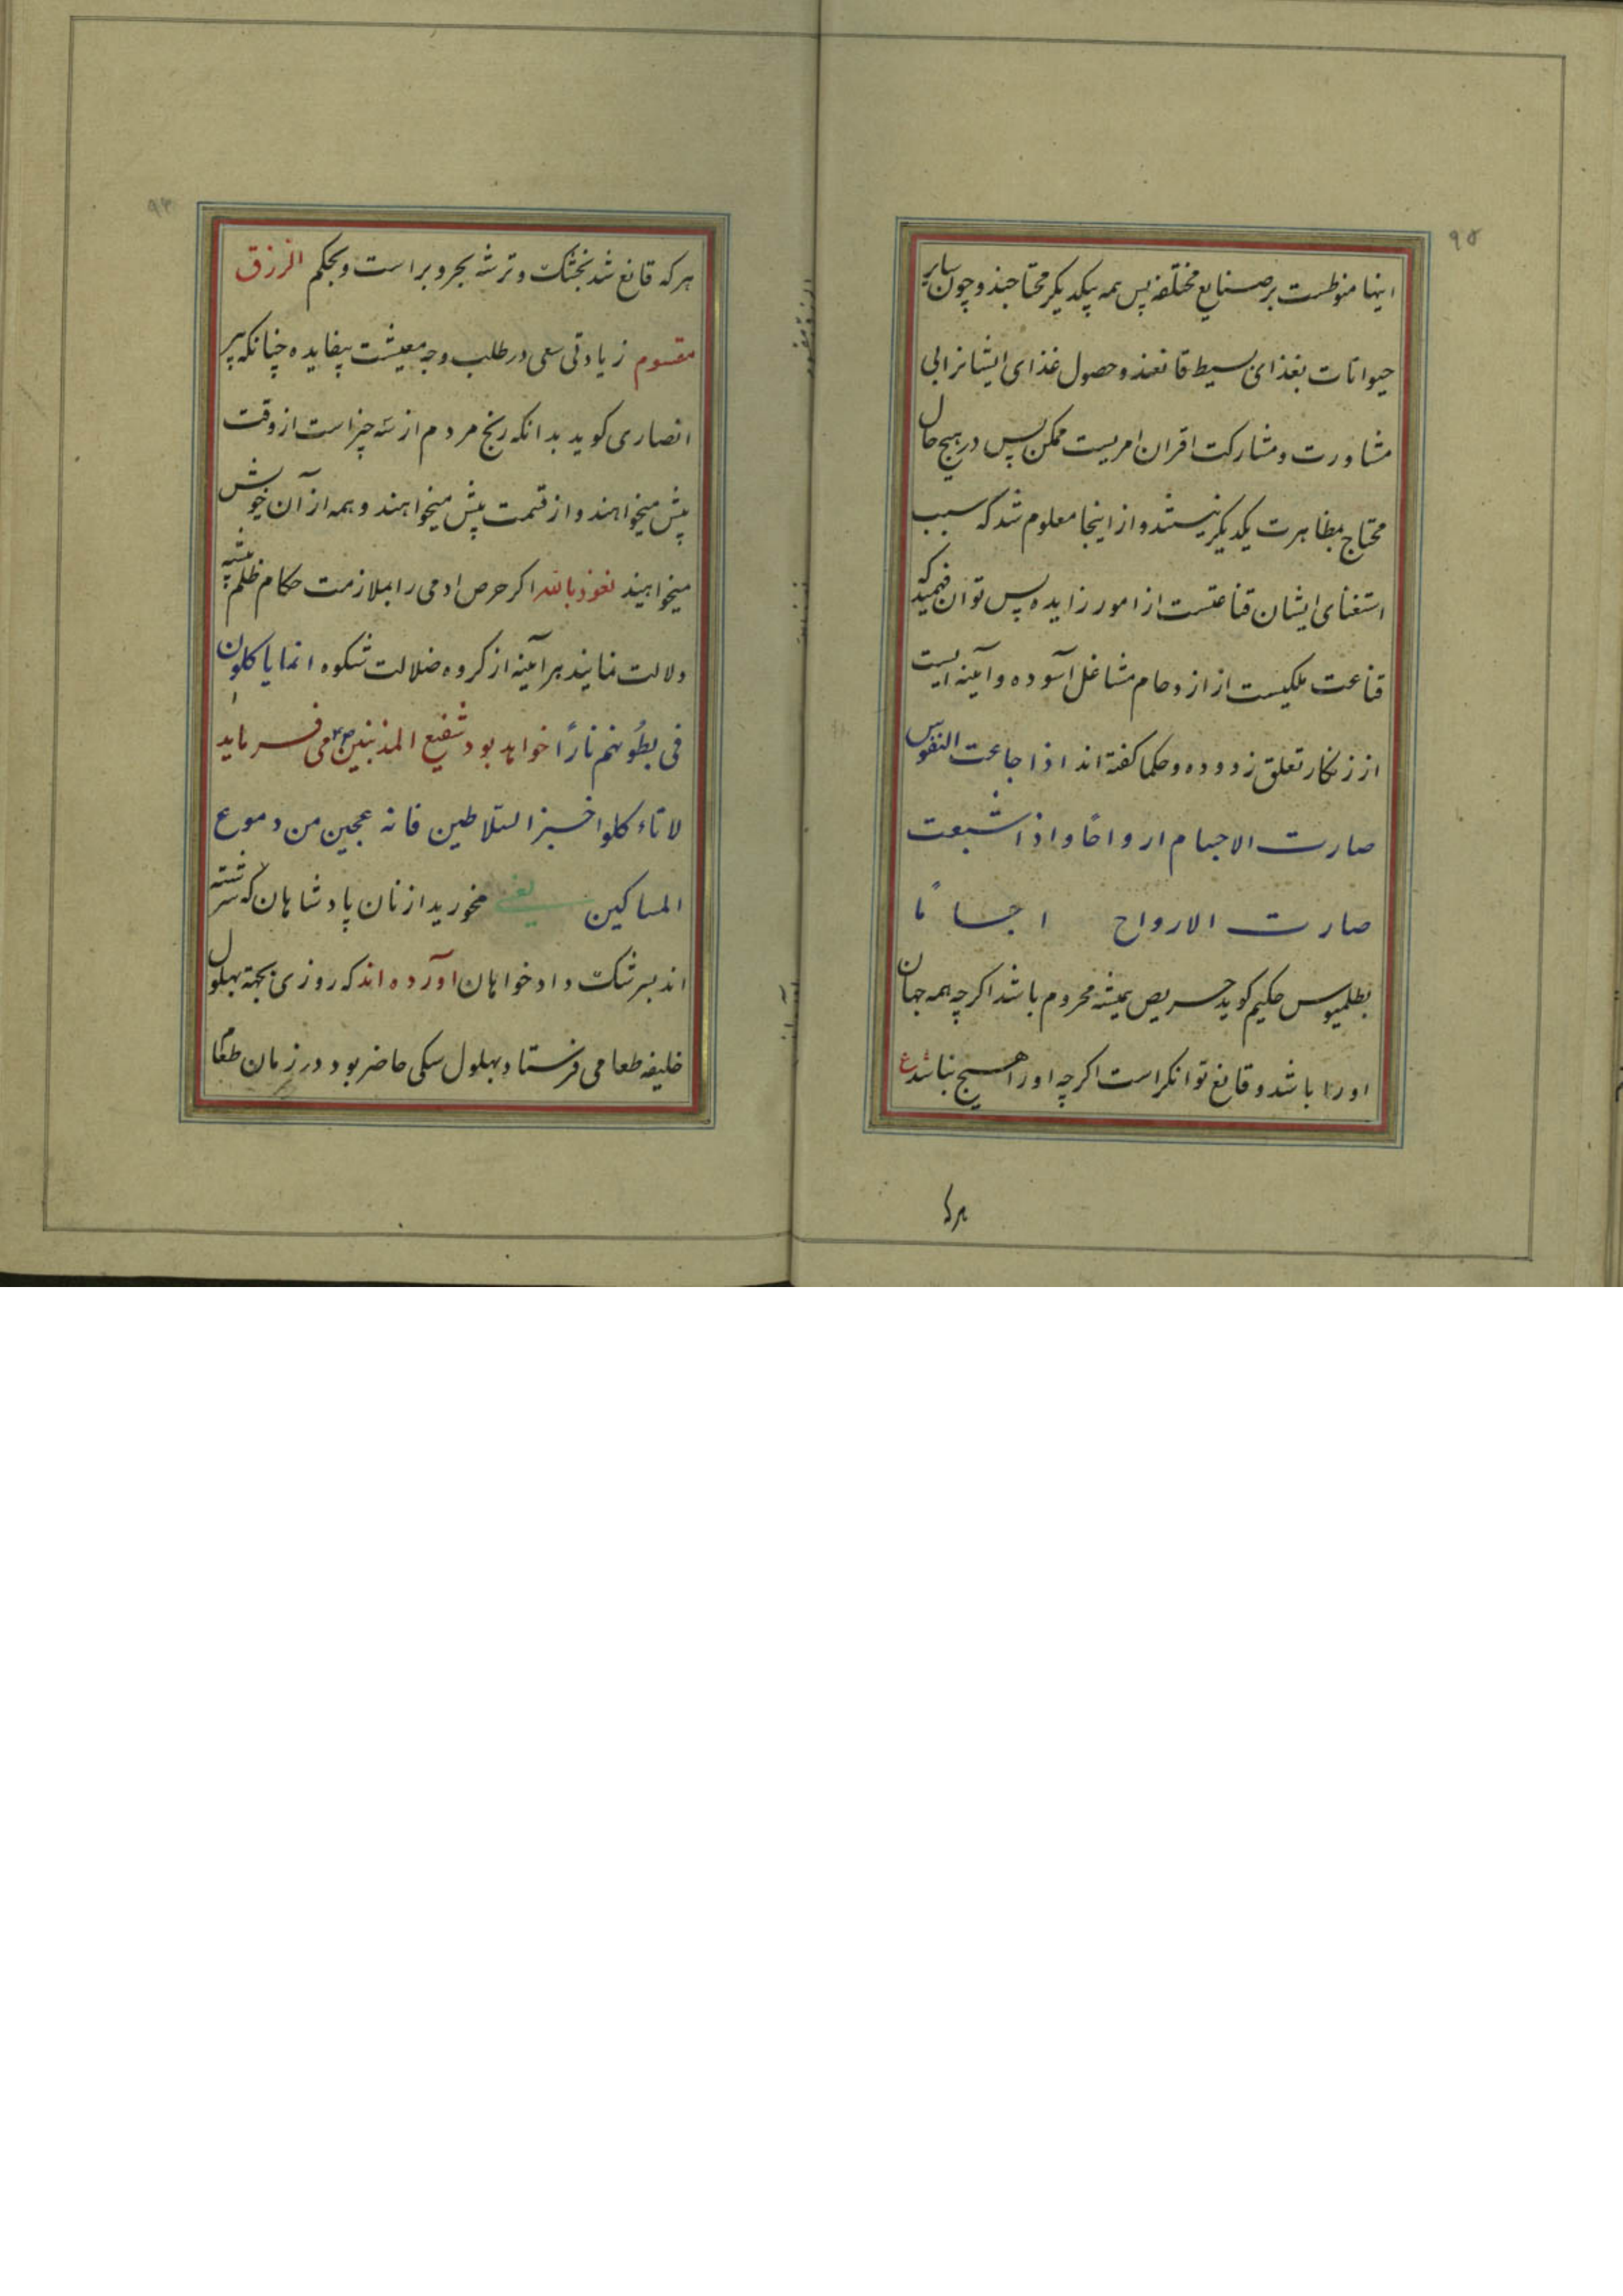 ٩۵
اینها منوطست بر صنایع مختلفه پس همه بیکدیکر محتاجند و چون سایر
حیوانات بغذای بسیط قانعند و حصول غذای ایشانرا بی
مشاورت و مشارکت اقران امریست ممکن پس در هیچ حال
محتاج بمظاهرت یکدیکر نیستند و از اینجا معلوم شد که سبب
استغنای ایشان قناعتست از امور زایده پس توان فهمید که
قناعت ملکیست از ازدحام مشاغل آسوده و آینه ایست
از زنکار تعلق زدوده و حکما کفته اند اذا جاعت النفوس
صارت الاجسام ارواحًا و اذا شبعت
صارت الارواح اجسامًا
بطلمیوس حکیم کوید حریص همیشه محروم باشد اکرچه همه جهان
او را باشد و قانع توانکر است اکرچه او را هیچ نباشد ع
هر که
هر که قانع شد بخشک و تر شه بحر و بر است و بحکم الرزق
مقسوم زیادتی سعی در طلب وجه معیشت بیفایده چنانکه پیر
انصاری کوید بدانکه رنج مردم از سه چیز است از وقت
پیش میخواهند و از قسمت بیش میخواهند و همه از آن خویش
میخواهند نعوذ بالله اکر حرص ادمی را بملازمت حکام ظلم پیشه
دلالت نمایند هرآینه از کروه ضلالت شکوه انما یاکلون
فی بطُونهم نارًا خواهد بود شفیع المذنبین ص می فرماید
لا تاءکلوا خبز السّلاطین فانه عجین من دموع
المساکین یعنی مخورید از نان پادشاهان که سرشته
اند بسرشک دادخواهان آورده اند که روزی بجهة بهلول
خلیفه طعامی فرستاد بهلول سکی حاضر بود در زمان طعام